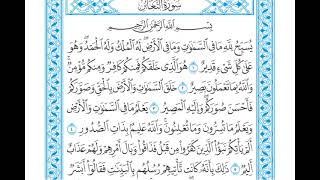 سورة التغابن
بسم الله الرحمن الرحيم
يسبح لله ما في السموات وما في الأرض له الملك وله الحمد وهو
على كل شيء قدير ١ هو الذي خلقكم فمنكم كافر ومنكم مؤمن
والله بما تعملون بصير ٢ خلق السموات والأرض بالحق وصوركم
فأحسن صوركم وإليه المصير ٣ يعلم ما في السموات والأرض
ويعلم ما تسرون وما تعلنون والله عليم بذات الصدور ٤
ألم يأتكم نبؤا الذين كفروا من قبل فذاقوا وبال أمرهم ولهم عذاب
أليم ٥ ذلك بأنه كانت تأتيهم رسلهم بالبينات فقالوا أبشر